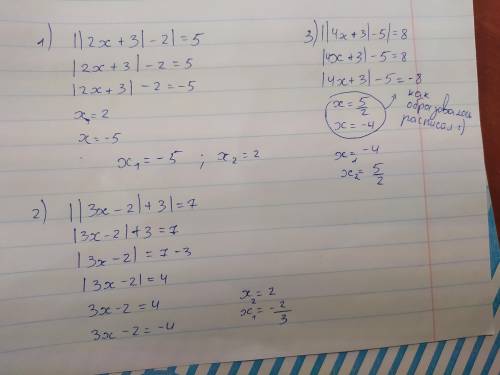 1) ||2x+3|-2|=5
|2x+3|-2=5
|2x+3|-2=-5
x=2
x=-5
x₁=-5 ; x₂=2
2) ||3x-2|+3|=7
|3x-2|+3=7
|3x-2|=7-3
|3x-2|=4
3x-2=4
3x-2=-4
x₂=2
x₁=-2/3
3) ||4x+3|-5|=8
|4x+3|-5=8
|4x+3|-5=-8
x=5/2
x=-4
как
образовалось
расписал :)
x₁=-4
x₂=5/2